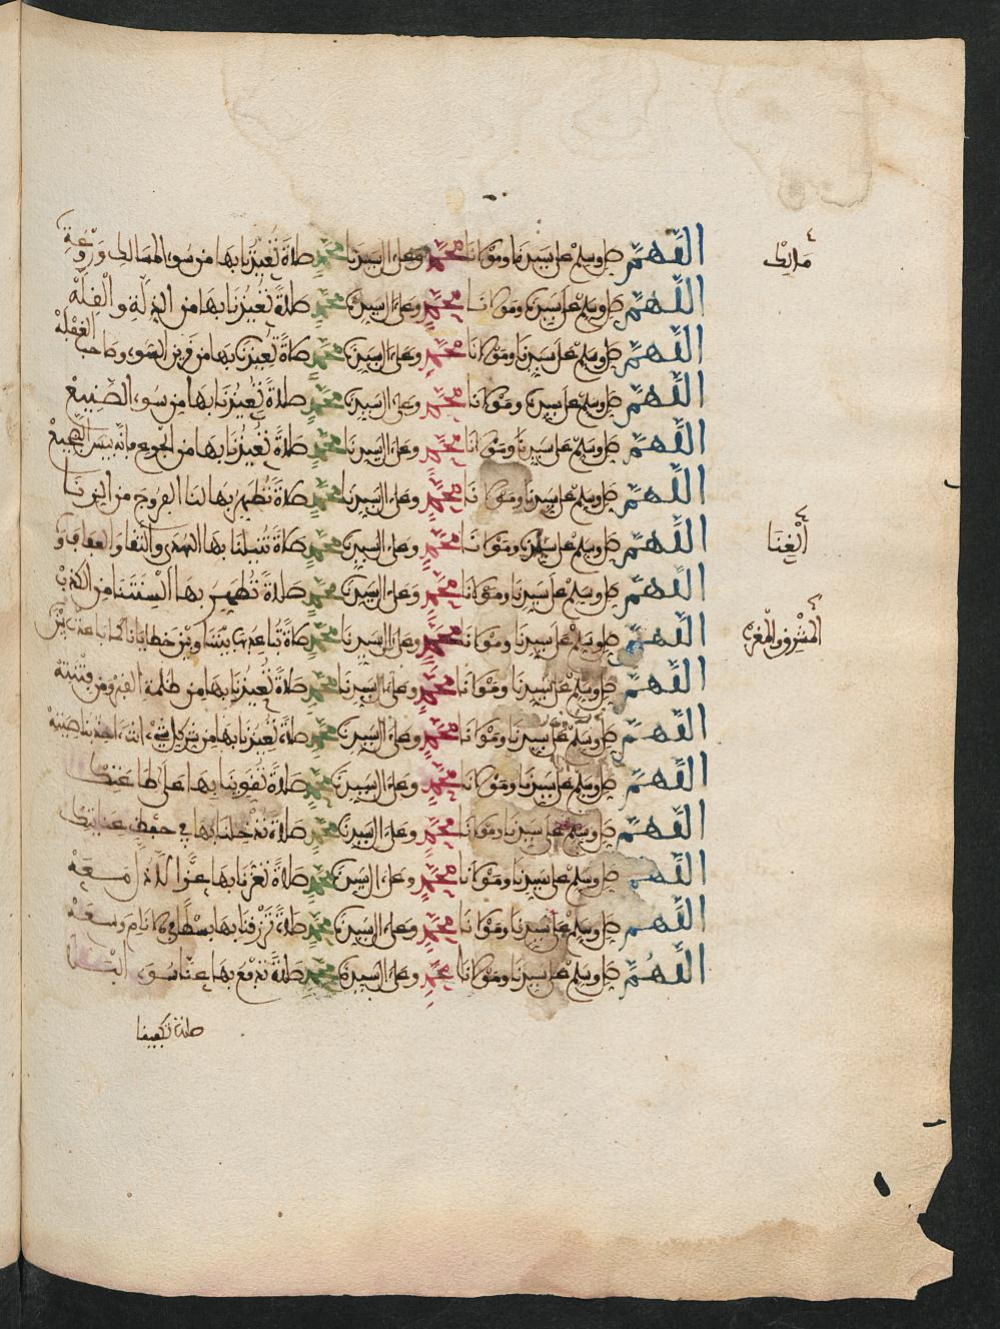 اللهم صل وسلم على سيدنا ومولانا محمد وعلى ال سيدنا محمد صلاة تعيذنا بها من سوء المسالك وروعة
مالك
اللهم صل وسلم على سيدنا ومولانا محمد وعلى ال سيدنا محمد صلاة تعيذنا بها من الذلة والقلة
اللهم صل وسلم على سيدنا ومولانا محمد وعلى ال سيدنا محمد صلاة تعيذنا بها من قرين السوء وصاحب الغفلة
اللهم صل وسلم على سيدنا ومولانا محمد وعلى ال سيدنا محمد صلاة تعيذنا بها من سوء الصنيع
اللهم صل وسلم على سيدنا ومولانا محمد وعلى ال سيدنا محمد صلاة تعيذنا بها من الجوع فإنه بيس الضجيع
اللهم صل وسلم على سيدنا ومولانا محمد وعلى ال سيدنا محمد صلاة تطهر بها لنا الفروج من الزنا
اللهم صل وسلم على سيدنا ومولانا محمد وعلى ال سيدنا محمد صلاة تنيلنا بها الهدى والتقا والعفاف و
الغنا
اللهم صل وسلم على سيدنا ومولانا محمد وعلى ال سيدنا محمد صلاة تطهر بها ألسنتنا من الكذب
اللهم صل وسلم على سيدنا ومولانا محمد وعلى ال سيدنا محمد صلاة تباعد بها بيننا وبين خطايانا كما باعدت بين
المشرق والمغرب
اللهم صل وسلم على سيدنا ومولانا محمد وعلى ال سيدنا محمد صلاة تعيذنا بها من ظلمة القبر ومن فتنته
اللهم صل وسلم على سيدنا ومولانا محمد وعلى ال سيدنا محمد صلاة تعيذنا بها من شر كل شيء أنت ءاخذ بناصيته
اللهم صل وسلم على سيدنا ومولانا محمد وعلى ال سيدنا محمد صلاة تقوينا بها على طاعتك
اللهم صل وسلم على سيدنا ومولانا محمد وعلى ال سيدنا محمد صلاة تدخلنا بها في حفظ عنايتك
اللهم صل وسلم على سيدنا ومولانا محمد وعلى ال سيدنا محمد صلاة تعزنا بها
اللهم صل وسلم على سيدنا ومولانا محمد وعلى ال سيدنا محمد صلاة ترزقنا بها بسطا في وسعة
اللهم صل وسلم على سيدنا ومولانا محمد وعلى ال سيدنا محمد صلاة تدفع بها عنا سوء
صلاة تكفينا